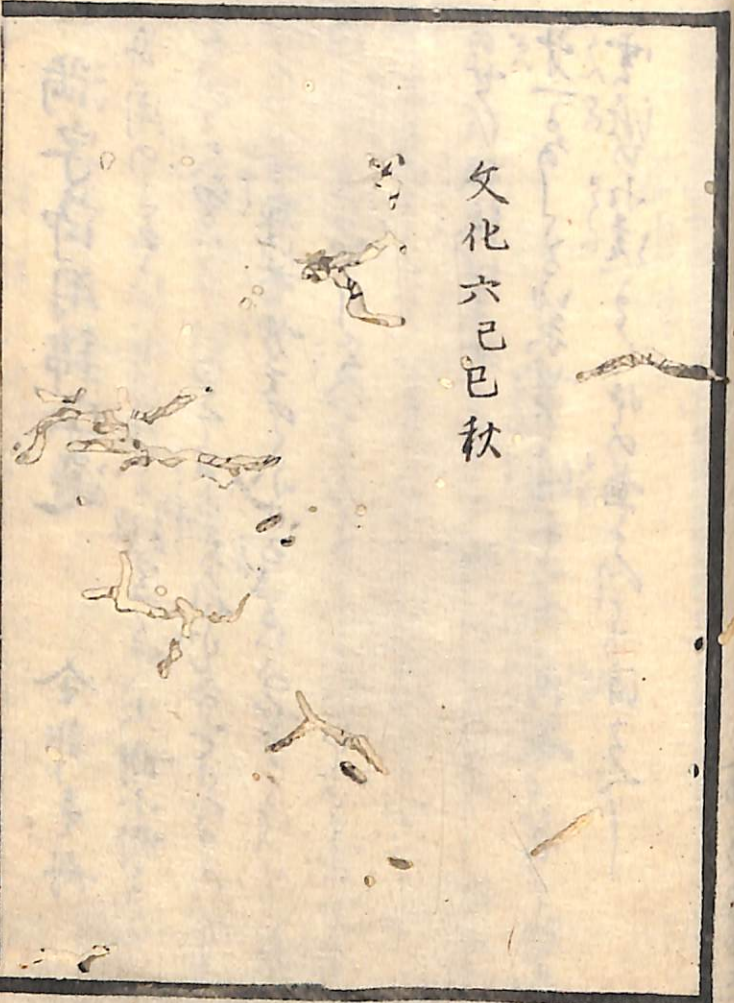 文化六己巳秋